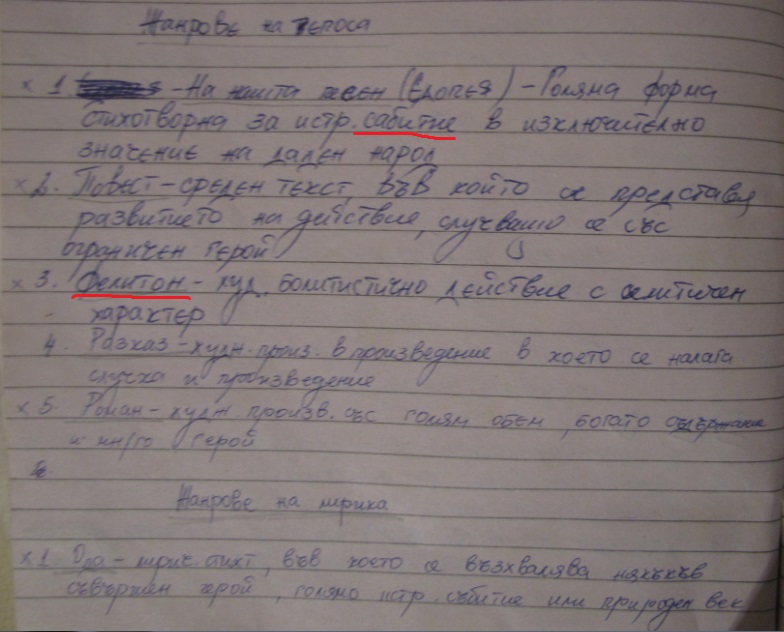 Жанрове на епоса
x 1 - На нашта песен (Епопея) - Голяма форма
стихотворна за истр. сабитие в изключително
значение на даден народ
x 2. Повест - среден текст във който се представя
развитието на действие, случващо се със
ограничен герой
x 3. Фелитон - худ. болитистично действие с
характер
4. Разказ - худж. произ. в произведение в което се налага
случка и произведение
x 5. Роман - худж. произв. със голям обем, богато съдържание
и мн/го герой
Жанрове на лирика
x 1. Ода - лирич. стихт, във което се възхвалява някъкъв
съвършен герой, голямо истр. събитие или природен век